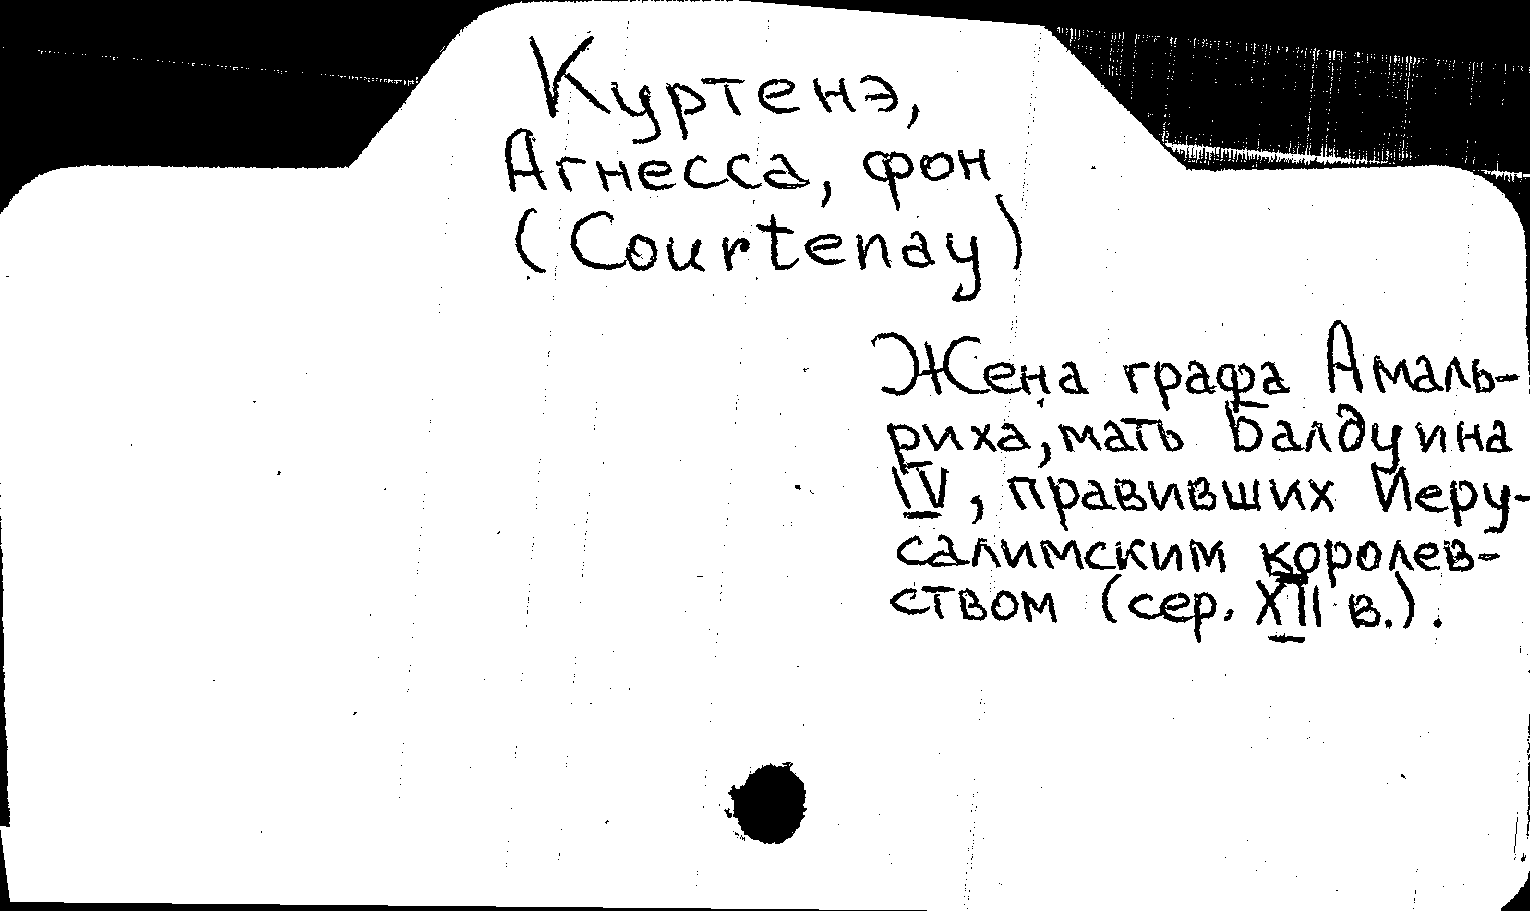 Куртенэ,
Агнесса, фон
(Courtenay)
Жена графа Амаль-
риха, мать Балдуина
IV, правивших Иеру-
салимским королев-
ством (сер. XII в.).